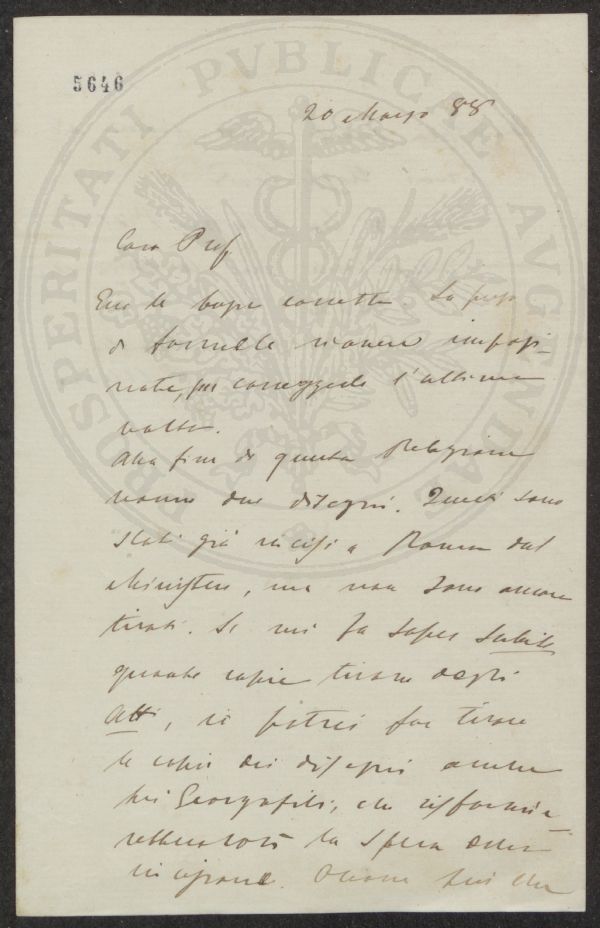 5646
PROSPERITATI PVBLICAE AVGENDAE
20 Marzo 88
Caro Prof.
Ecco le bozze corrette. La prego
di farmele rimanere
per correggerle l'ultima
volta.
Alla fine di questa Relazione
vanno due disegni. Questi sono
stati già incisi a Roma dal
Ministero, ma non sono ancora
tirati. Se mi fa saper subito
quante copie tirare degli
Atti, io potrei far tirare
le copie dei disegni anche
pei Georgofili, che
la spesa della
incisione.